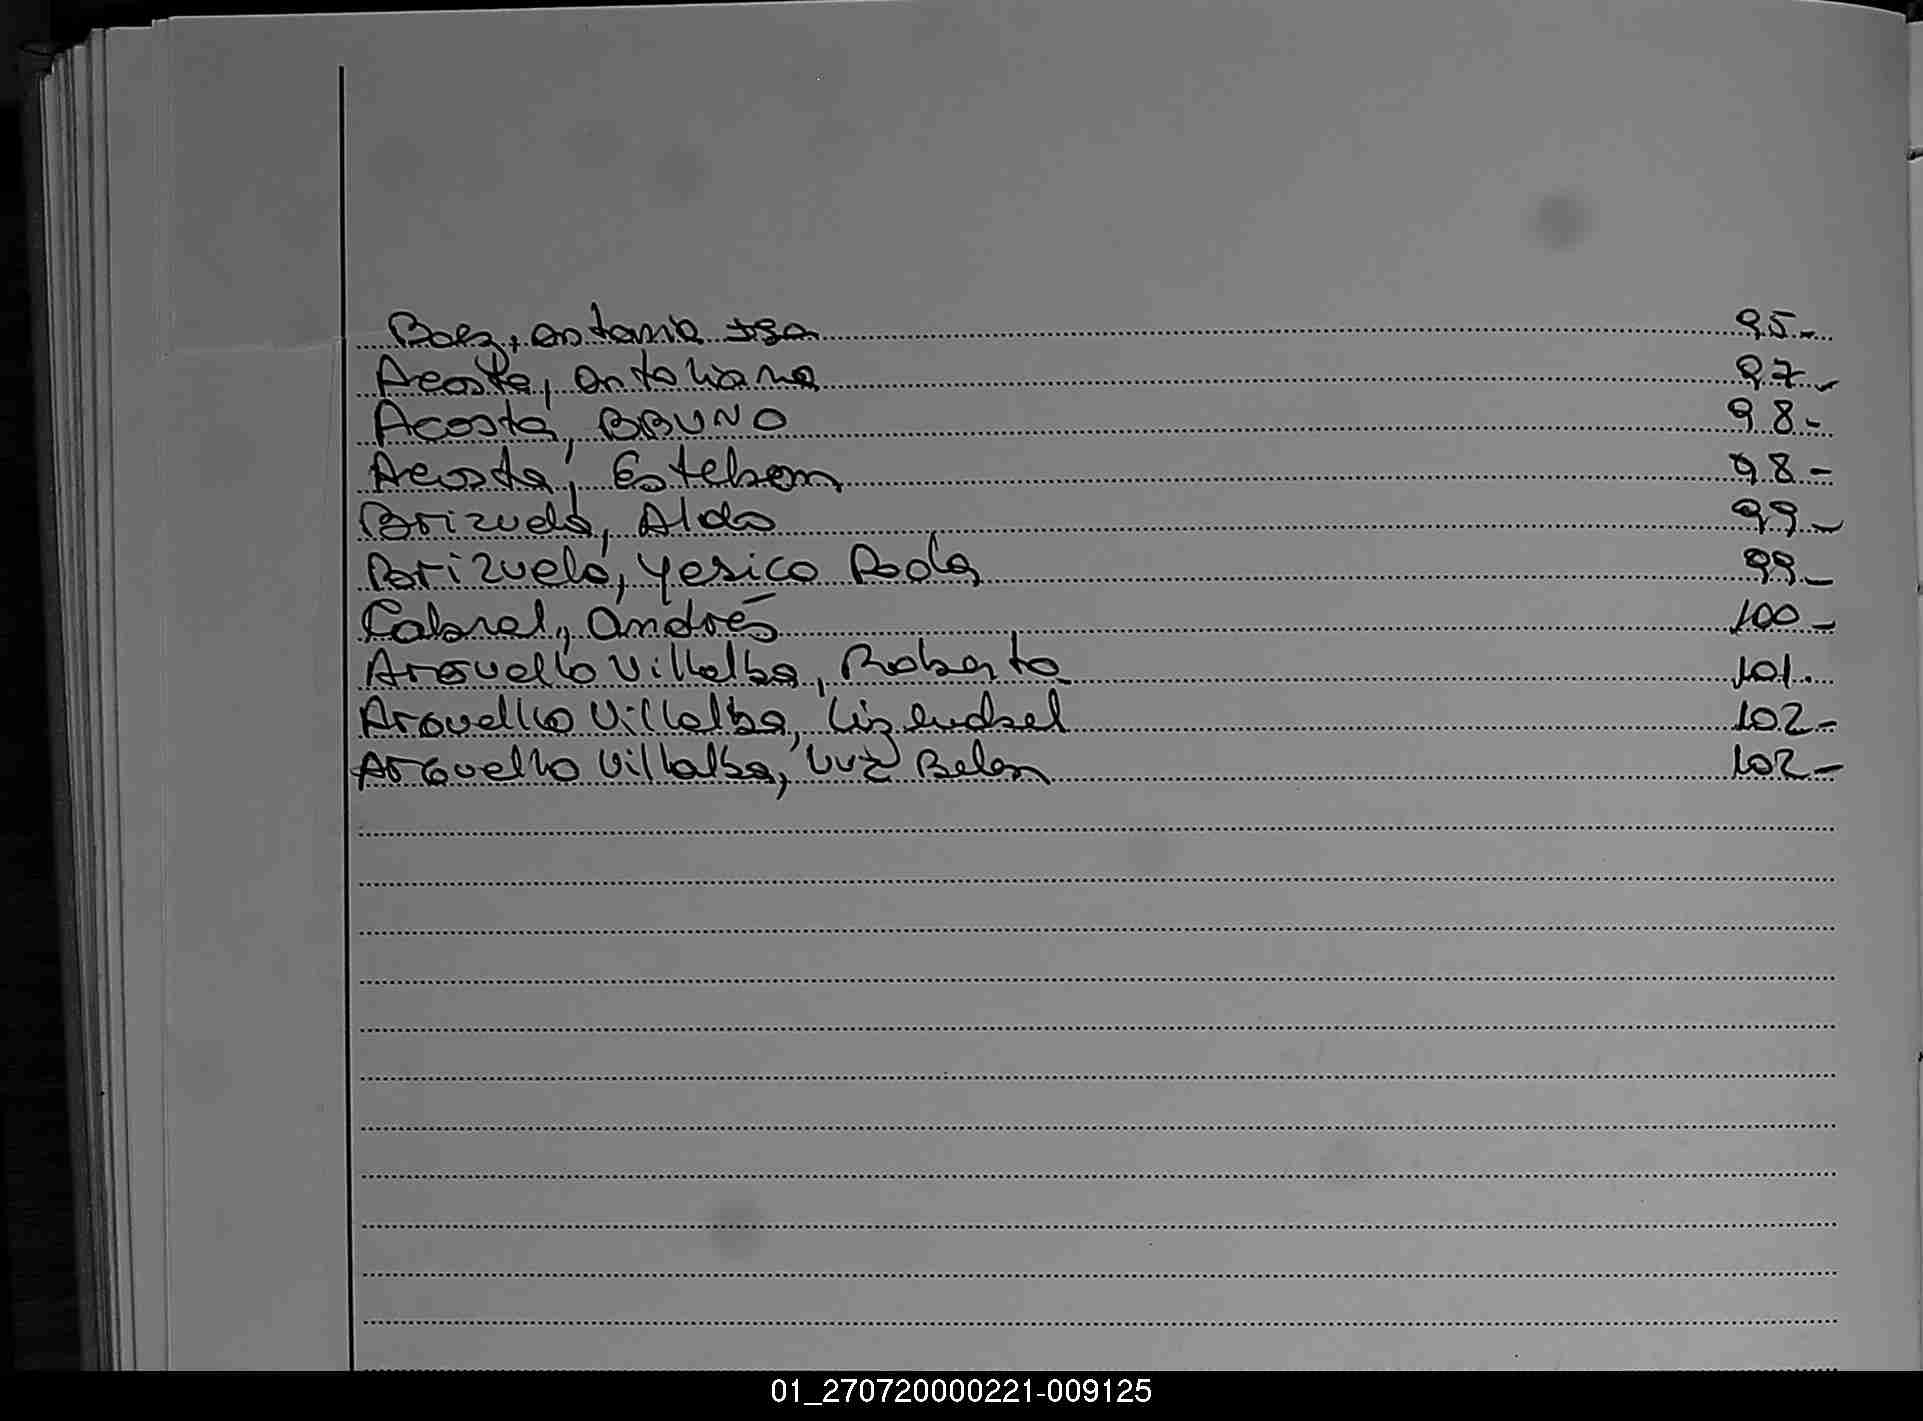 Baez, Antonia Isa 95-
Acosta, Antoliana 97-
Acosta, BRUNO 98-
Acosta, Esteban 98-
Brizuela, Aldo 99-
Brizuela, Yesica 99-
Cabral, Andrés 100-
Arguello Villalba, Roberto 101.
Arguello Villalba, Liz 102-
Arguello Villalba, Luz Belen 102-
01_270720000221-009125